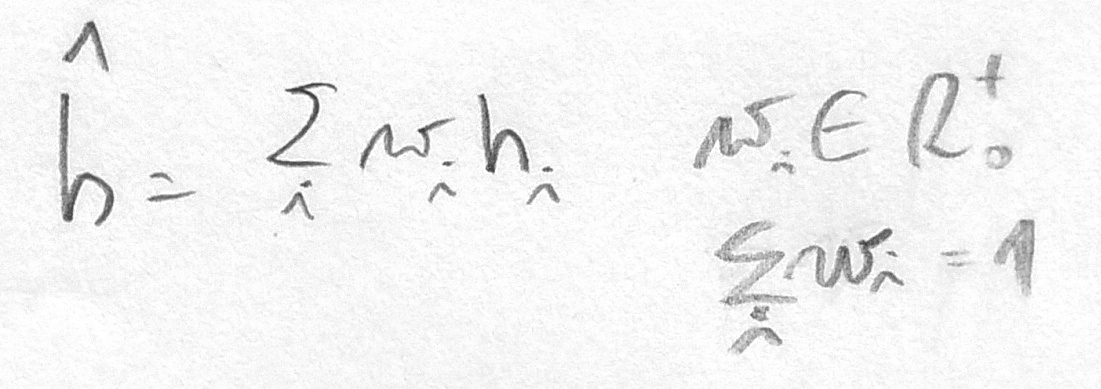 ĥ = Σᵢ wᵢ hᵢ wᵢ ∈ R₀⁺
Σᵢ wᵢ = 1